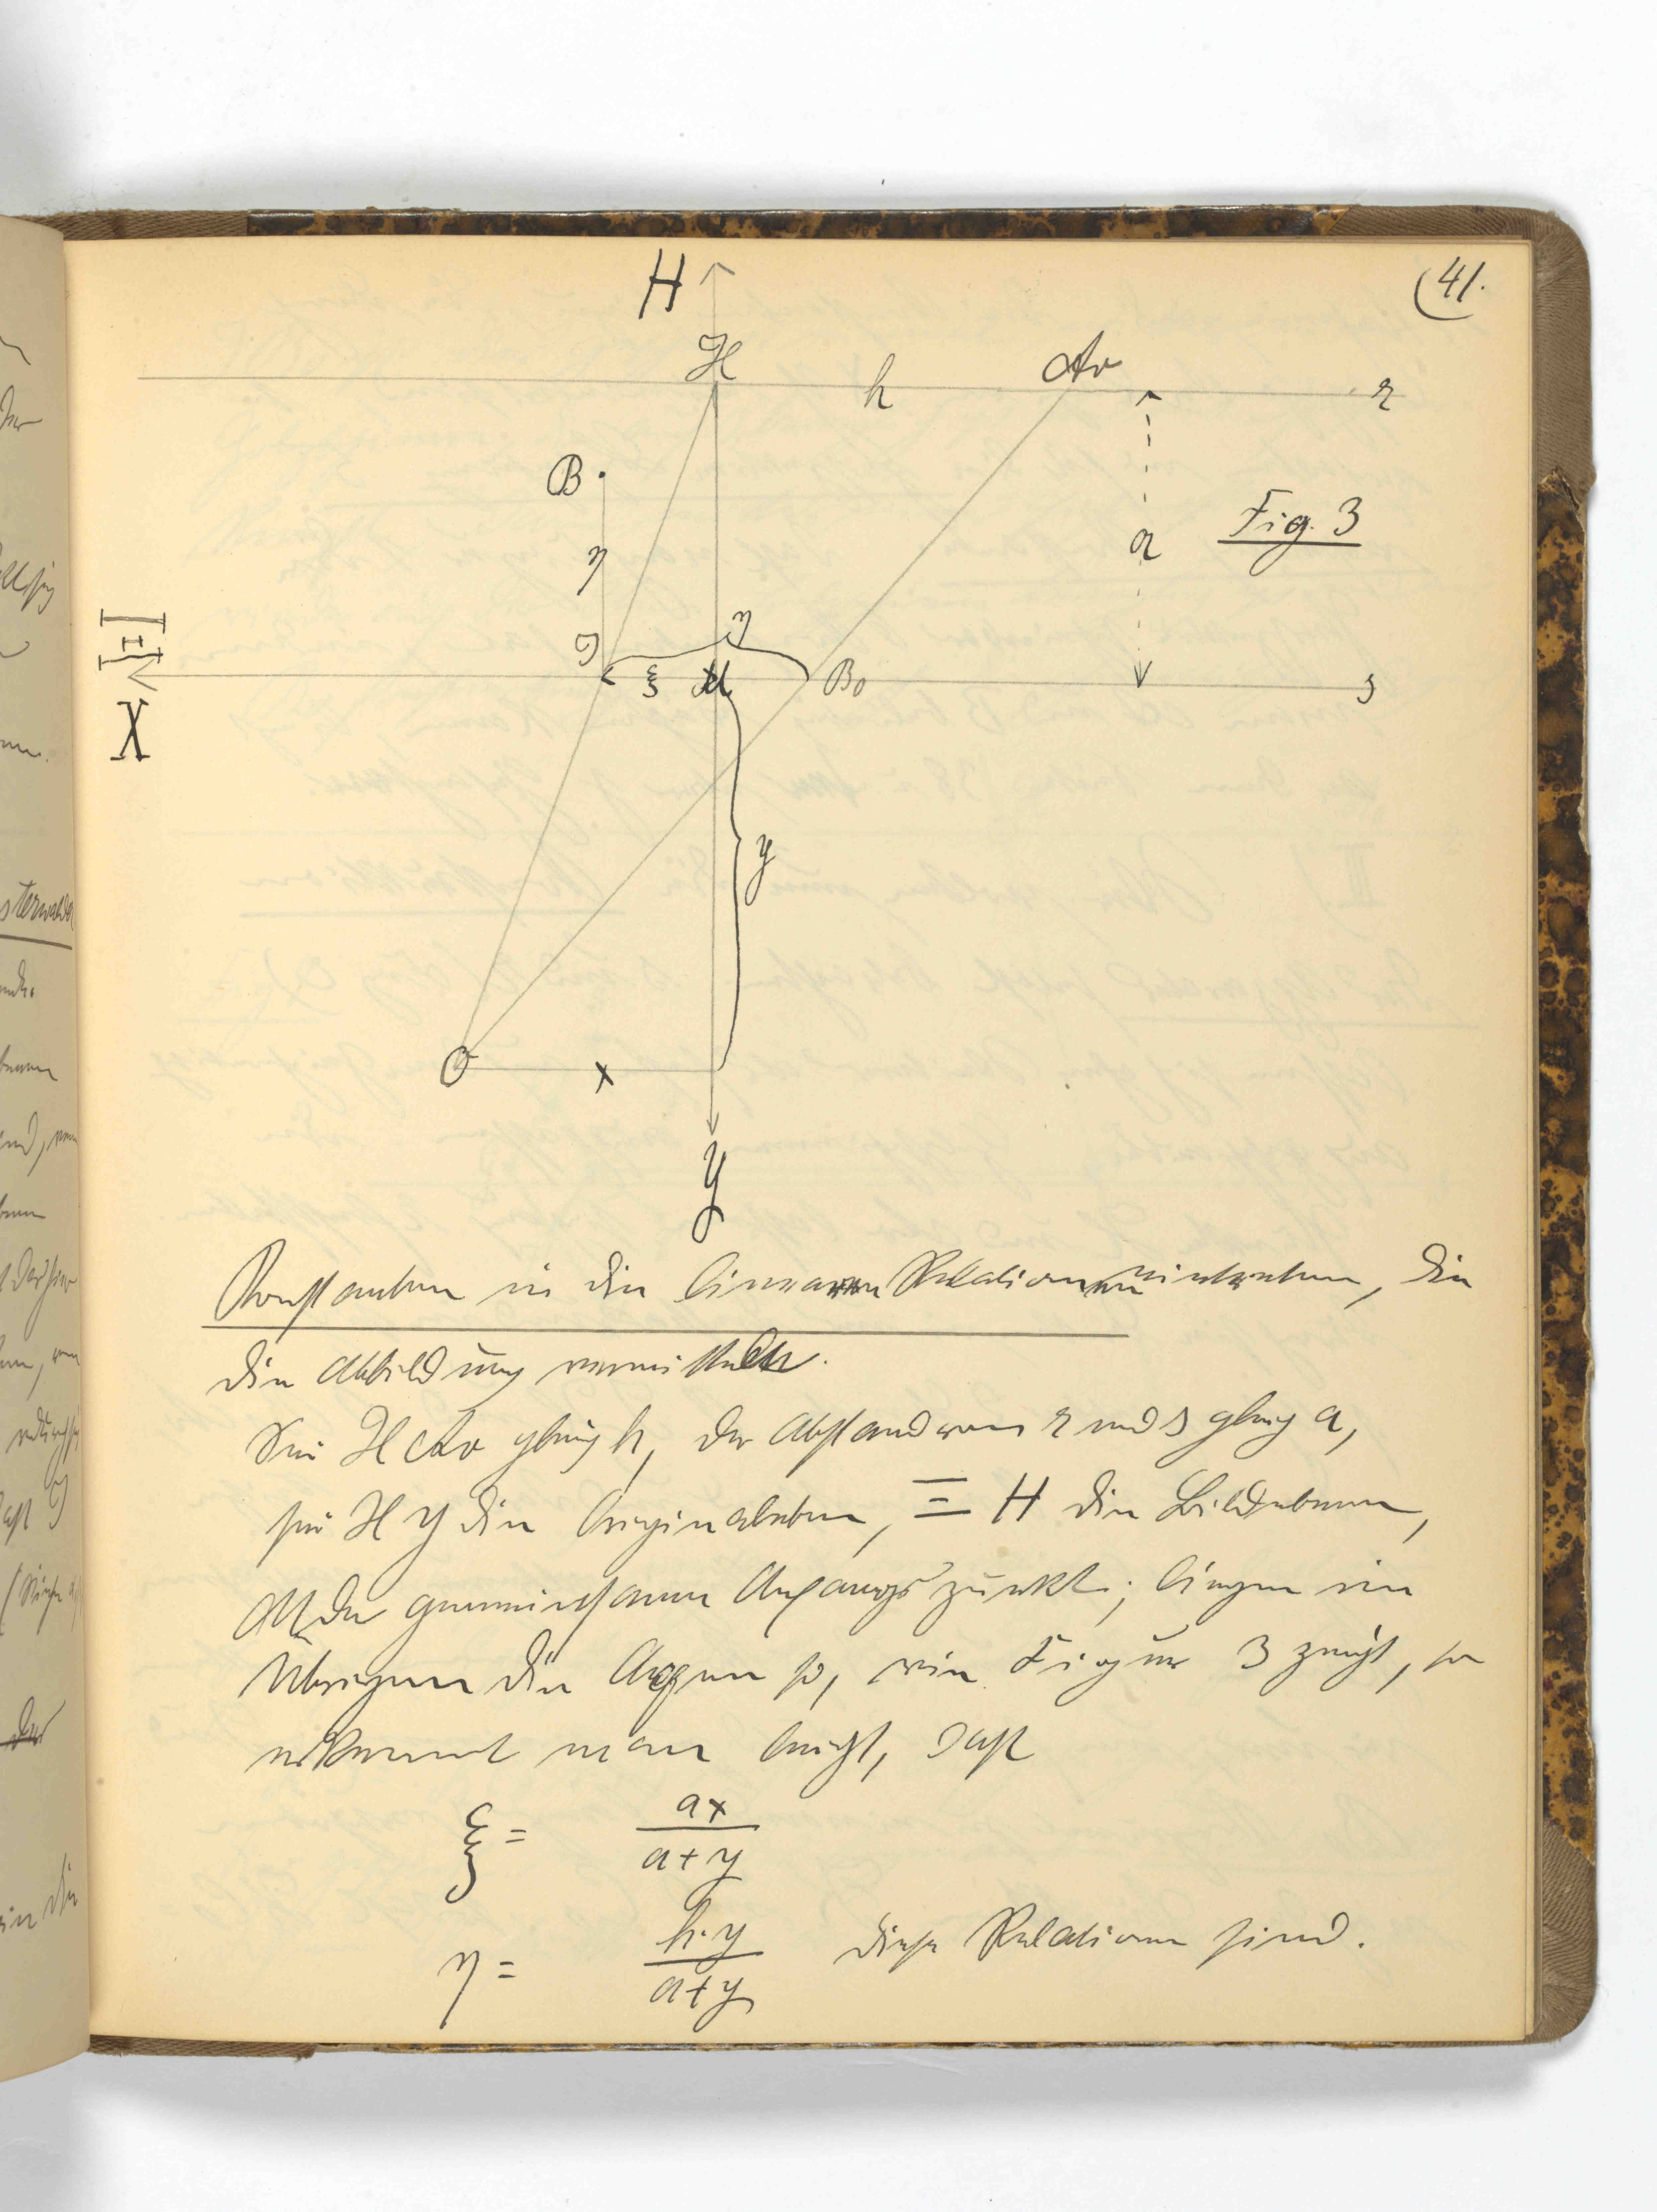 (41.
H
H h A₀ r
B
η a Fig. 3
J η
ξ M B₀ s
Ξ X
y
O x
Y
Konstanten in die linearen Relationen eintreten, die
die Abbildung vermitteln.
Sei H A₀ gleich h, der Abstand von r und s gleich a,
sei X Y die Originalebene, Ξ H die Bildebene,
M der gemeinsame Anfangspunkt; liegen im
Übrigen die Axen so, wie Figur 3 zeigt, so
erkennt man leicht, daß
ξ = ax / a+y
η = h·y / a+y diese Relationen sind.